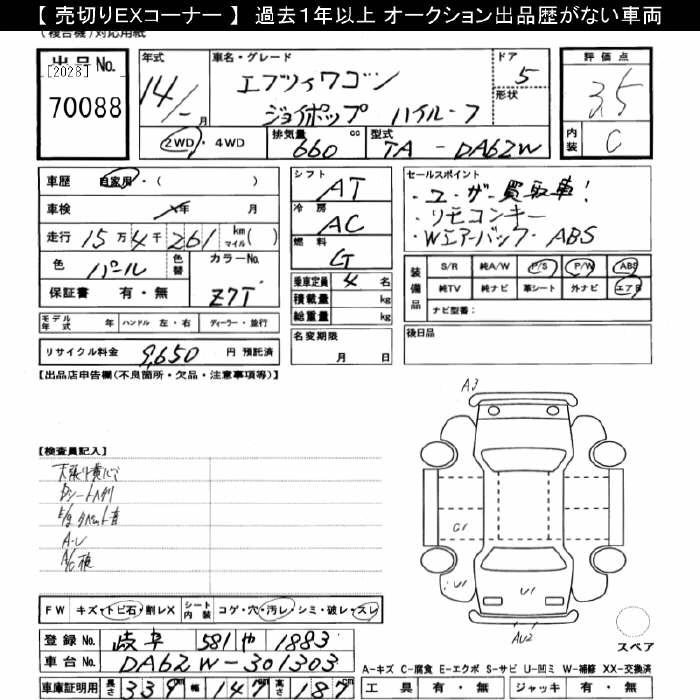 【 売切りEXコーナー 】 過去１年以上 オークション出品歴がない車両
(複合機)対応用紙
出品No.
[2028]
70088
年式 14/- 月
車名・グレード エブリィワゴン
ジョイポップ ハイルーフ
ドア 5
形状
評価点 3.5
内装 C
2WD・4WD
排気量 660 cc
型式 TA - DA62W
車歴 自家用・( )
車検 年 月
走行 15万4千261 km マイル( )
色 パール 色替 カラーNo. Z7T
保証書 有・無
モデル年式 年 ハンドル 左・右 ディーラー・並行
リサイクル料金 9,650 円 預託済
シフト AT
冷房 AC
燃料 G
乗車定員 4 名
積載量 kg
総重量 kg
名変期限 月 日
セールスポイント
・ユーザー買取車!
・リモコンキー
・Wエアーバック・ABS
装備品 S/R 純A/W P/S P/W ABS
純TV 純ナビ 革シート 外ナビ エアB
ナビ型番:
後日品
【出品店申告欄(不良箇所・欠品・注意事項等)】
【検査員記入】
A/C
A3
G1
U1
U1
AU2
スペア
FW キズ・トビ石・割レX シート内装 コゲ・穴・汚レ・シミ・破レ・スレ
登録No. 岐阜 581 や 1883
車台No. DA62W-301303
車庫証明用 長さ 339cm 幅 147cm 高さ 187cm
A-キズ C-腐食 E-エクボ S-サビ U-凹ミ W-補修 XX-交換済
工具 有・無 ジャッキ 有・無